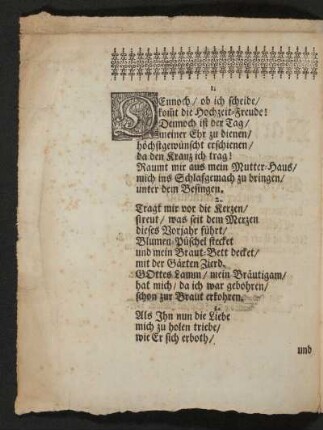 1.
DEnnoch/ ob ich scheide/
komt die Hochzeit-Freude!
Dennoch ist der Tag/
meiner Ehr zu dienen/
höchstgewünscht erschienen/
da den Kranz ich trag!
Raumt mir aus mein Mutter-Haus/
mich ins Schlafgemach zu bringen/
unter dem Besingen.
2.
Tragt mir vor die Kerzen/
streut/ was seit dem Merzen
dieses Vorjahr führt/
Blumen-Püschel stecket
und mein Braut-Bett decket/
mit der Gärten Zierd.
GOttes Lamm/ mein Bräutigam/
hat mich/ da ich war gebohren/
schon zur Braut erkohren.
3.
Als Ihn nun die Liebe
mich zu holen triebe/
wie Er sich erboth/
und